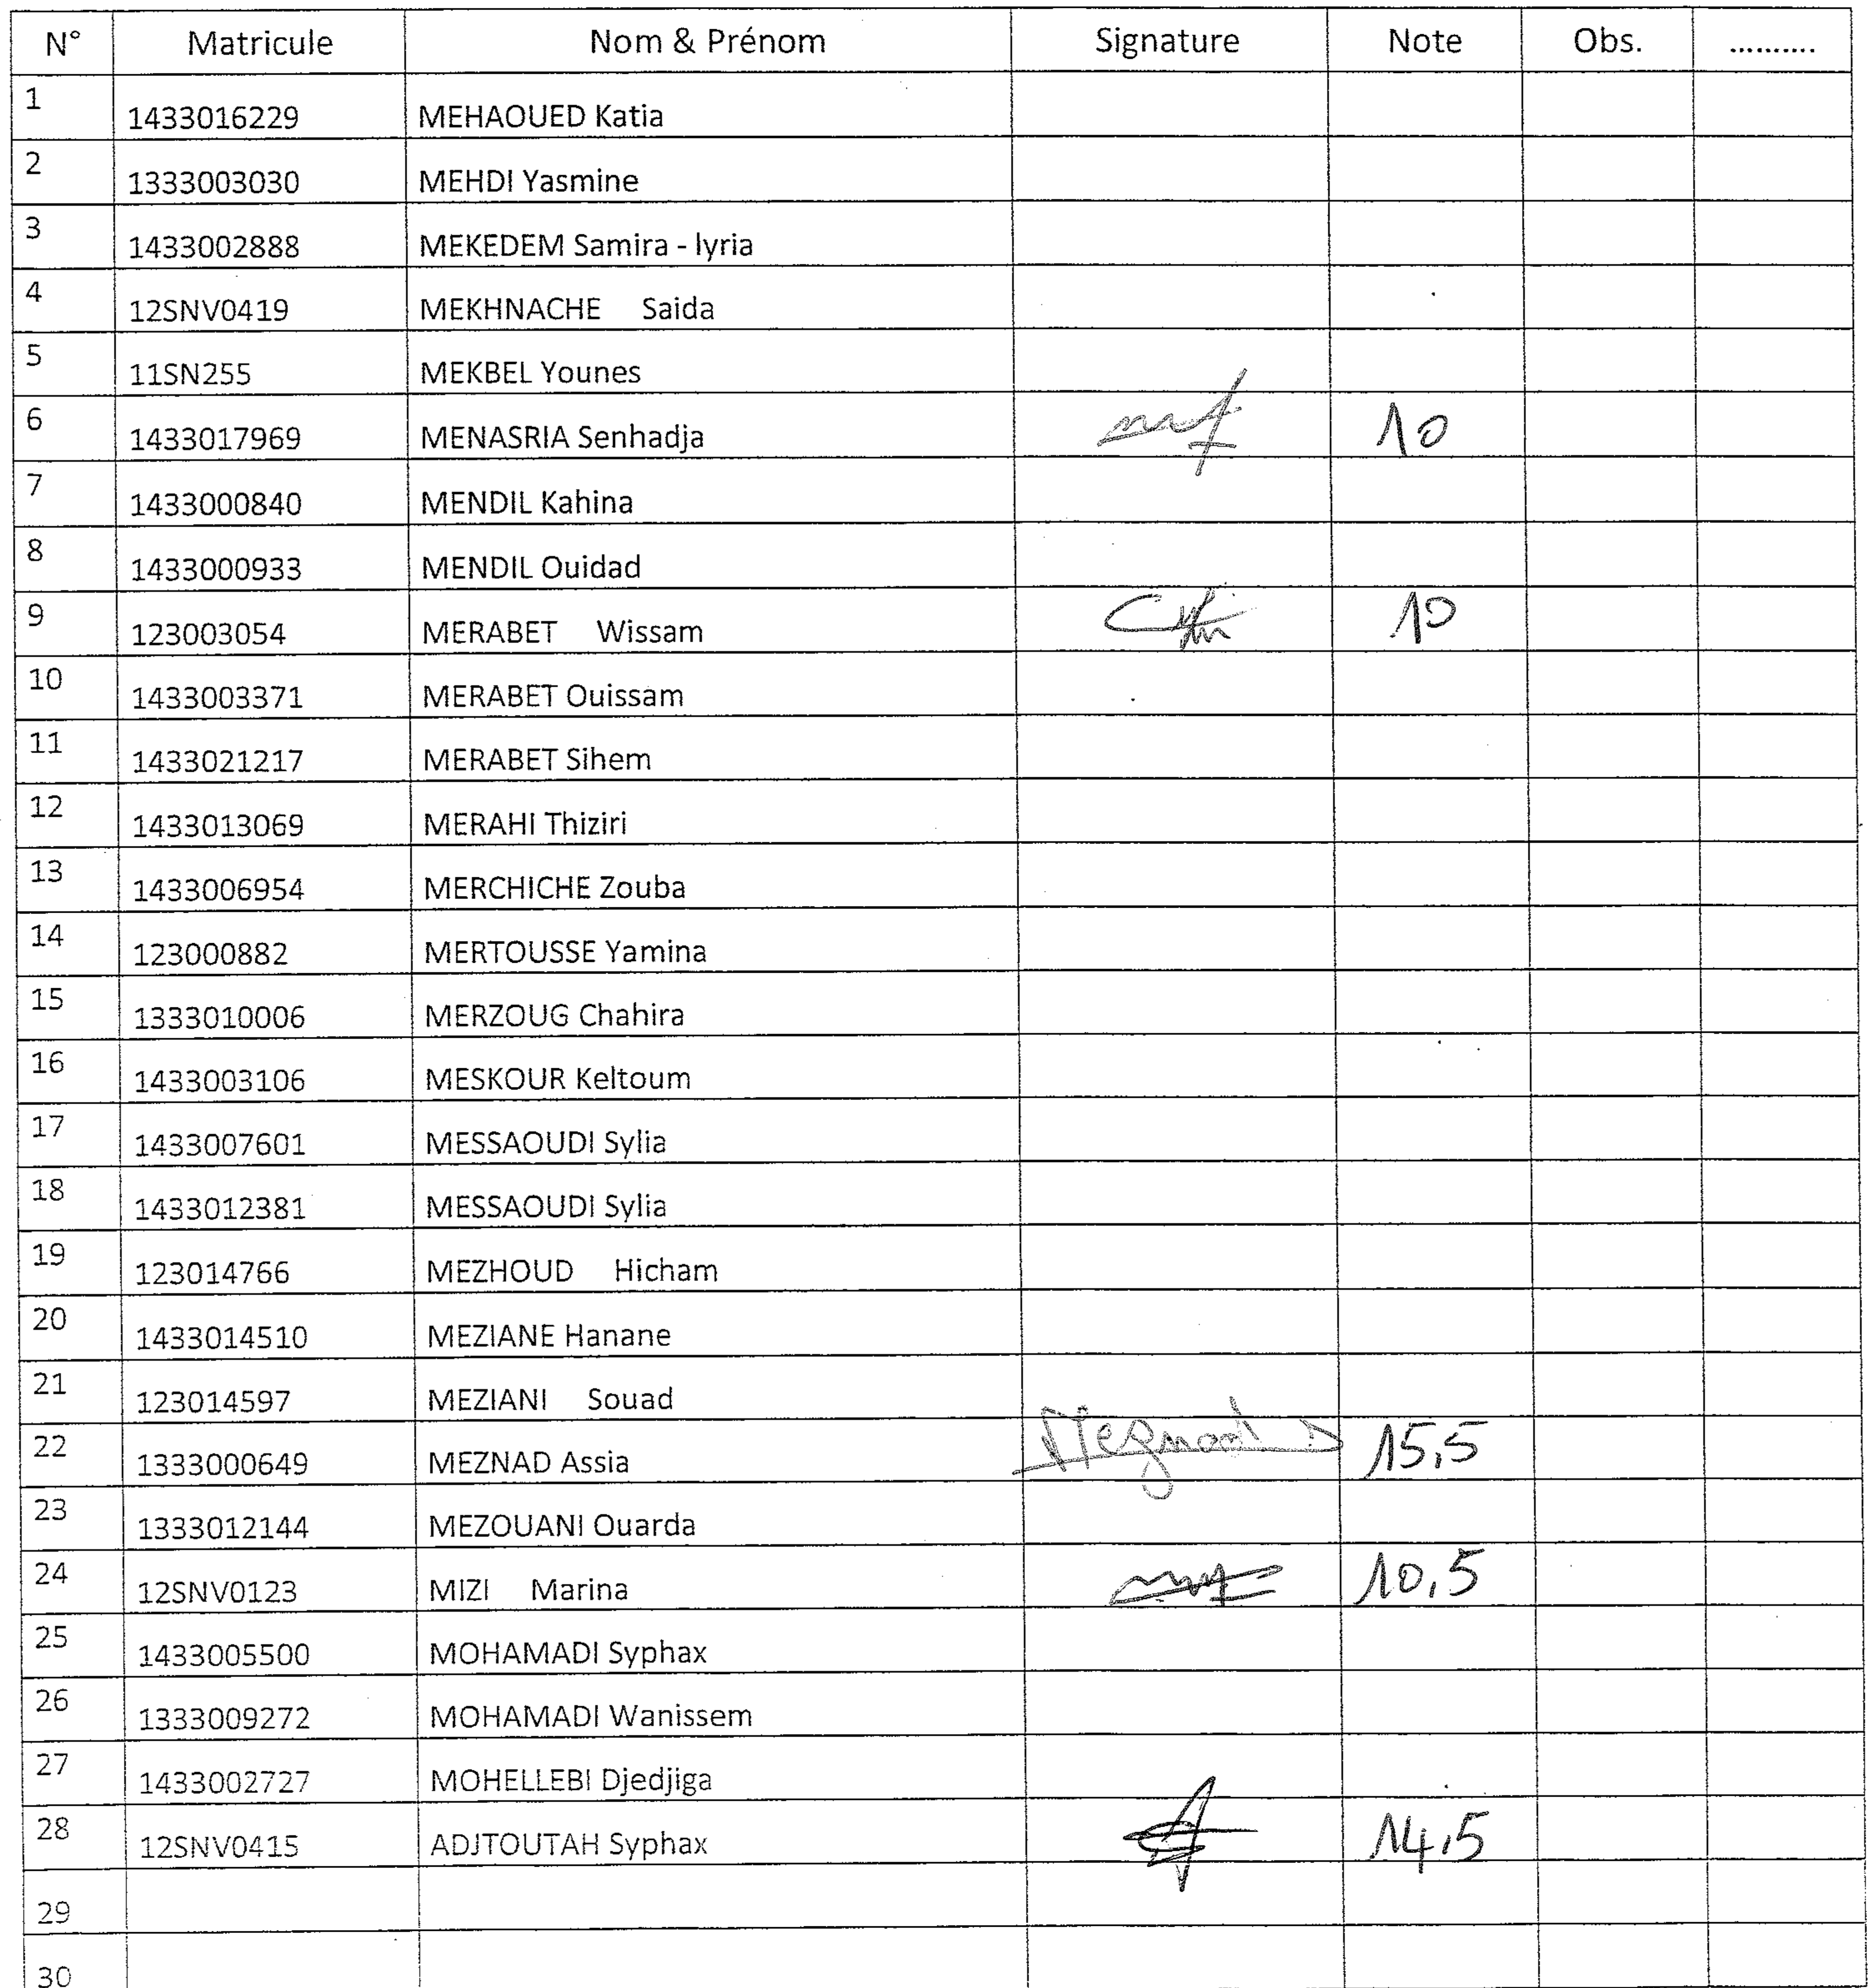 N° Matricule Nom & Prénom Signature Note Obs. ..........
1 1433016229 MEHAOUED Katia
2 1333003030 MEHDI Yasmine
3 1433002888 MEKEDEM Samira - lyria
4 12SNV0419 MEKHNACHE Saida
5 11SN255 MEKBEL Younes
6 1433017969 MENASRIA Senhadja 10
7 1433000840 MENDIL Kahina
8 1433000933 MENDIL Ouidad
9 123003054 MERABET Wissam 10
10 1433003371 MERABET Ouissam
11 1433021217 MERABET Sihem
12 1433013069 MERAHI Thiziri
13 1433006954 MERCHICHE Zouba
14 123000882 MERTOUSSE Yamina
15 1333010006 MERZOUG Chahira
16 1433003106 MESKOUR Keltoum
17 1433007601 MESSAOUDI Sylia
18 1433012381 MESSAOUDI Sylia
19 123014766 MEZHOUD Hicham
20 1433014510 MEZIANE Hanane
21 123014597 MEZIANI Souad
22 1333000649 MEZNAD Assia 15,5
23 1333012144 MEZOUANI Ouarda
24 12SNV0123 MIZI Marina 10,5
25 1433005500 MOHAMADI Syphax
26 1333009272 MOHAMADI Wanissem
27 1433002727 MOHELLEBI Djedjiga
28 12SNV0415 ADJTOUTAH Syphax 14,5
29
30